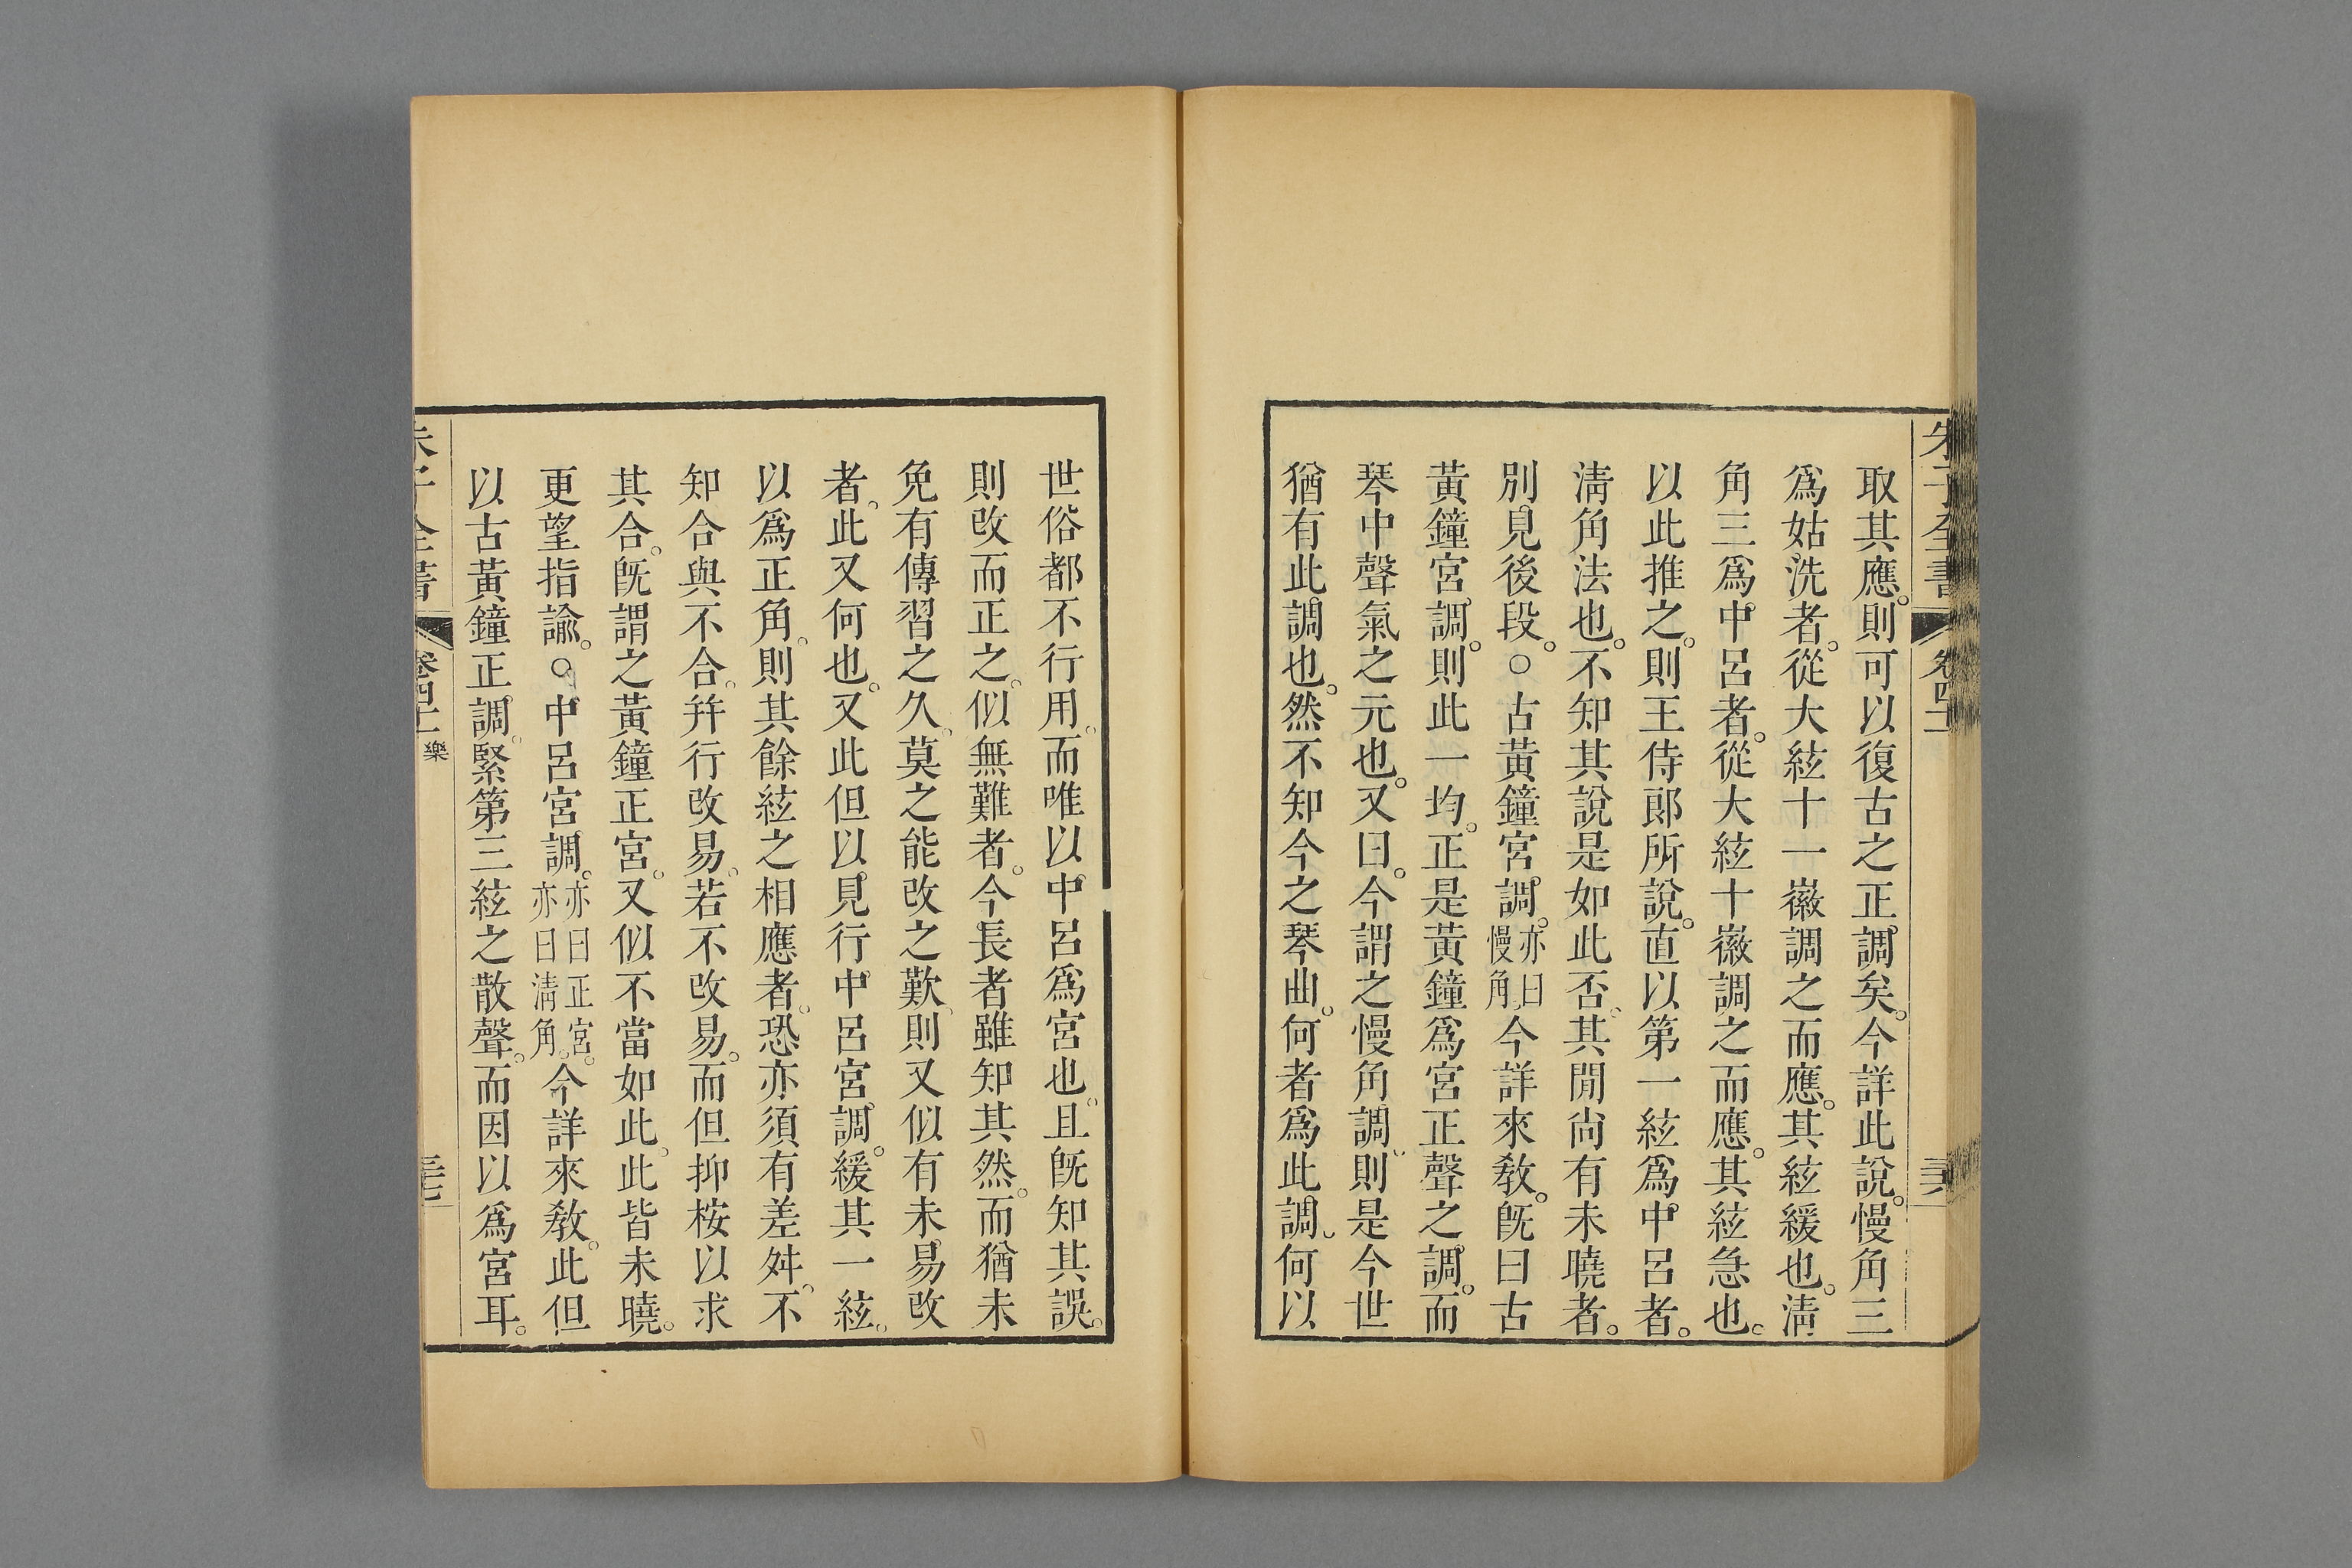 朱子全書 卷四十一
取其應。則可以復古之正調矣。今詳此說。慢角三
爲姑洗者。從大絃十一徽調之而應。其絃緩也。淸
角三爲中呂者。從大絃十徽調之而應。其絃急也。
以此推之。則王侍郎所說。直以第一絃爲中呂者。
淸角法也。不知其說是如此否。其閒尙有未曉者。
別見後段。○古黃鐘宮調。亦曰慢角。今詳來敎。旣曰古
黃鐘宮調。則此一均。正是黃鐘爲宮正聲之調。而
琴中聲氣之元也。又曰。今謂之慢角調。則是今世
猶有此調也。然不知今之琴曲。何者爲此調。何以
世俗都不行用。而唯以中呂爲宮也。且旣知其誤。
則改而正之。似無難者。今長者雖知其然。而猶未
免有傳習之久。莫之能改之歎。則又似有未易改
者。此又何也。又此但以見行中呂宮調。緩其一絃。
以爲正角。則其餘絃之相應者。恐亦須有差舛。不
知合與不合。幷行改易。若不改易。而但抑按以求
其合。旣謂之黃鐘正宮。又似不當如此。此皆未曉。
更望指諭。○中呂宮調。亦曰正宮。亦曰淸角。今詳來敎。此但
以古黃鐘正調。緊第三絃之散聲。而因以爲宮耳。
朱子全書 卷四十一 樂 三十七